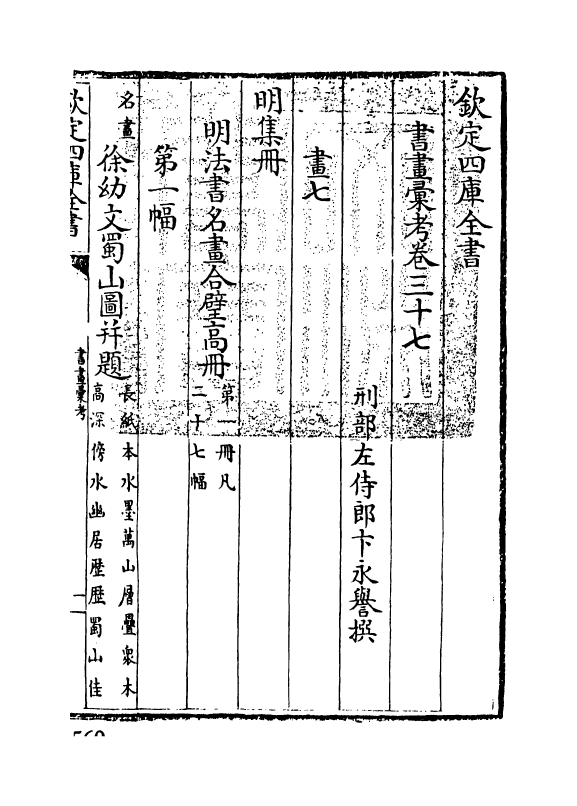 欽定四庫全書
書畫彙考卷三十七
刑部左侍郎卞永譽撰
畫七
明集冊
明法書名畫合璧高冊
第一冊凡
二十七幅
第一幅
名畫
徐幼文蜀山圖并題
長紙本水墨萬山層疊衆木
高深傍水幽居歷歷蜀山佳
欽定四庫全書
書畫彙考
一
560